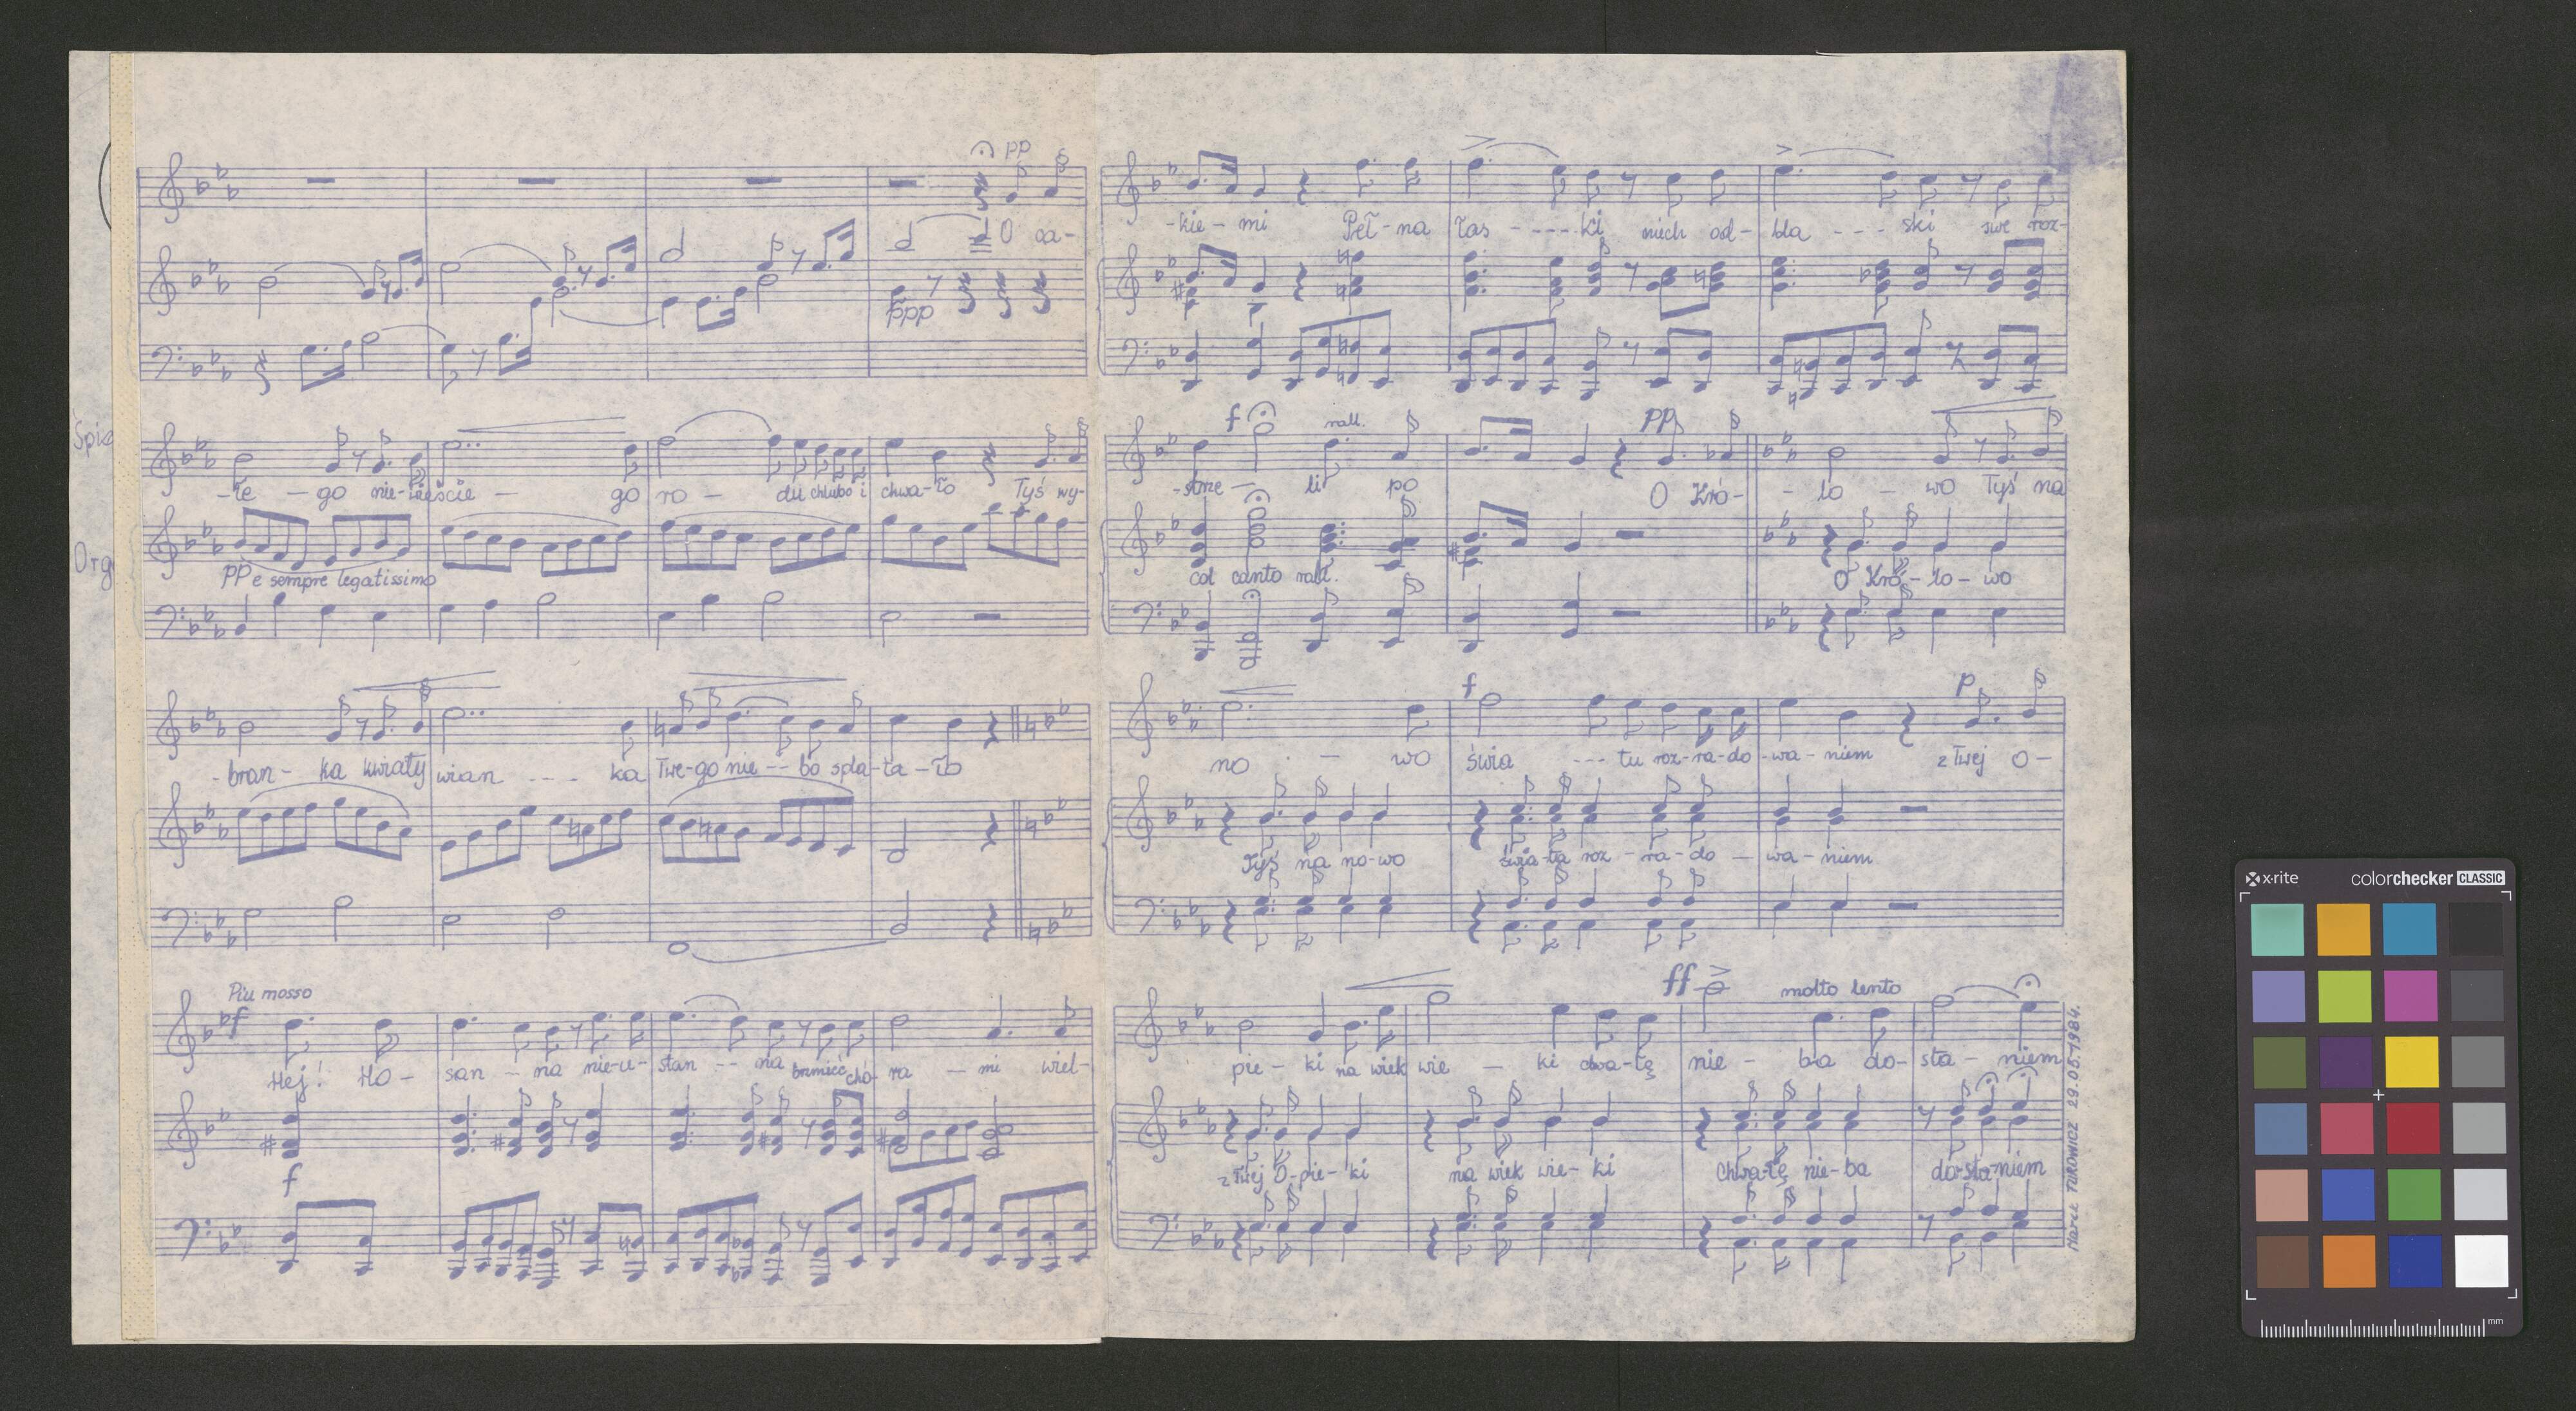 pp
O ca-
ppp
Śpie
-łe - go nie-wieście - go ro - du chlubo i chwa-ło Tyś wy-
Org
PP e sempre legatissimo
-bran- ka kwiaty wian --- ka Twe-go nie -- bo spla-ta-ło
Piu mosso
f
Hej! Ho- san - na nie-u- stan -- nia brmieć cho- ra - mi wiel-
f
-kie - mi Peł-na łas ---- ki niech od- bla --- ski swe roz-
f rall. pp
-strze - li po O Kró- - lo - wo Tyś na
col canto rall. O Kró-lo-wo
f p
no - wo świa --- tu roz-ra-do-wa-niem z Twej O-
Tyś na no-wo świa-ta roz-ra-do-wa-niem
ff molto lento
pie-ki na wiek wie - ki chwa-łę nie - ba do- sta - niem
z Twej O-pie-ki na wiek wie-ki chwa-łę nie-ba do-sta-niem
Marek TUROWICZ 29.05.1984.
x-rite colorchecker CLASSIC
mm